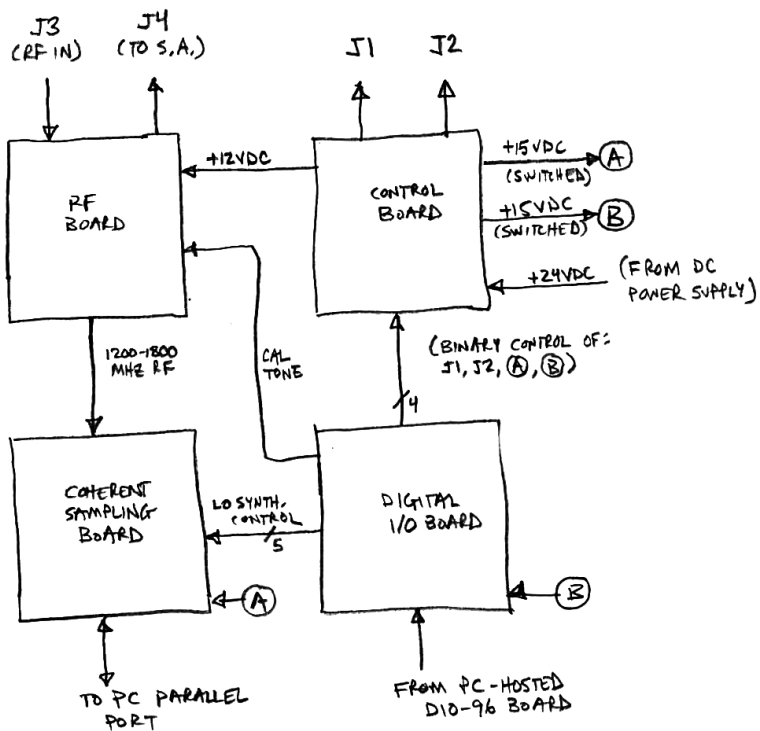 J3
(RF IN)
J4
(TO S.A.)
J1
J2
RF
BOARD
+12VDC
CONTROL
BOARD
+15VDC
(SWITCHED)
A
+15VDC
(SWITCHED)
B
+24VDC
(FROM DC
POWER SUPPLY)
1200-1800
MHZ RF
CAL
TONE
(BINARY CONTROL OF:
J1, J2, A, B)
4
COHERENT
SAMPLING
BOARD
LO SYNTH.
CONTROL
5
DIGITAL
I/O BOARD
A
B
TO PC PARALLEL
PORT
FROM PC-HOSTED
DIO-96 BOARD